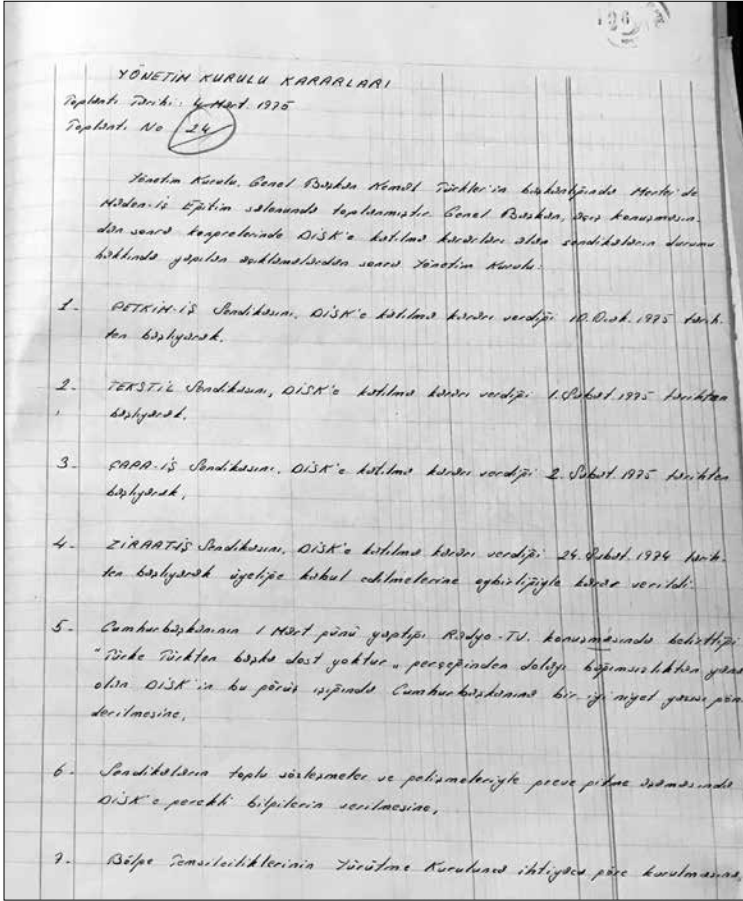 YÖNETİM KURULU KARARLARI
Toplantı Tarihi: 4 Mart 1975
Toplantı No 24
Yönetim Kurulu, Genel Başkan Kemal Türkler'in başkanlığında Merter'de
Maden-İş Eğitim salonunda toplanmıştır. Genel Başkan, açış konuşmasın-
dan sonra kongrelerinde DİSK'e katılma kararları alan sendikaların durumu
hakkında yapılan açıklamalardan sonra Yönetim Kurulu:
1- PETKİM-İŞ Sendikasını, DİSK'e katılma kararı verdiği 10.Ocak.1975 tarih-
ten başlıyarak,
2- TEKSTİL Sendikasını, DİSK'e katılma kararı verdiği 1.Şubat.1975 tarihten
başlıyarak,
3- ÇAPA-İŞ Sendikasını, DİSK'e katılma kararı verdiği 2.Şubat.1975 tarihten
başlıyarak,
4- ZİRAAT-İŞ Sendikasını, DİSK'e katılma kararı verdiği 24.Şubat.1974 tarih-
ten başlıyarak üyeliğe kabul edilmelerine oybirliğiyle karar verildi.
5- Cumhurbaşkanının 1 Mart günü yaptığı Radyo-TV. konuşmasında belirttiği
"Türke Türkten başka dost yoktur" gerçeğinden dolayı bağımsızlıktan yana
olan DİSK'in bu görüş ışığında Cumhurbaşkanına bir iyi niyet yazısı gön
derilmesine,
6- Sendikaların toplu sözleşmeler ve gelişmeleriyle greve gitme aşamasında
DİSK'e gerekli bilgilerin verilmesine,
7- Bölge Temsilciliklerinin Yürütme Kurulunca ihtiyaca göre kurulmasına,